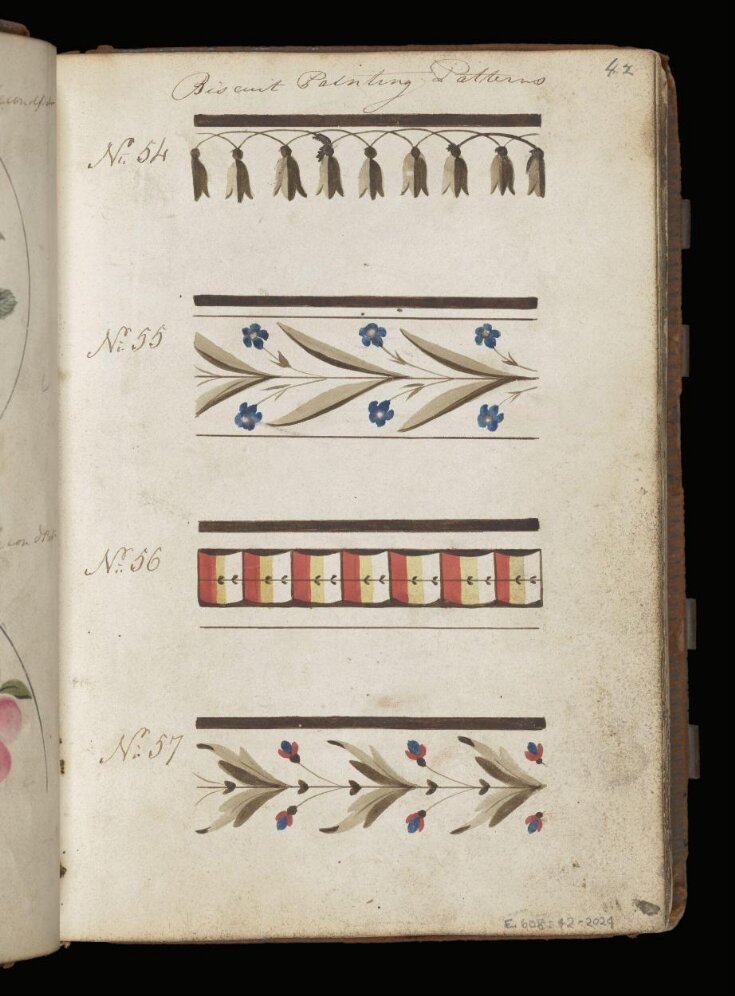 Biscuit Painting Patterns
42
No. 54
No. 55
No. 56
No. 57
E.608:42-2024